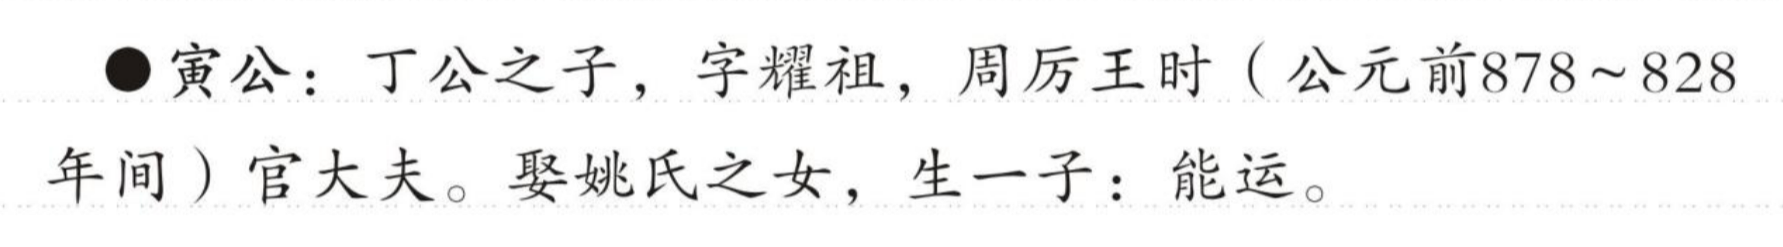 ●寅公：丁公之子，字耀祖，周厉王时（公元前878～828
年间）官大夫。娶姚氏之女，生一子：能运。